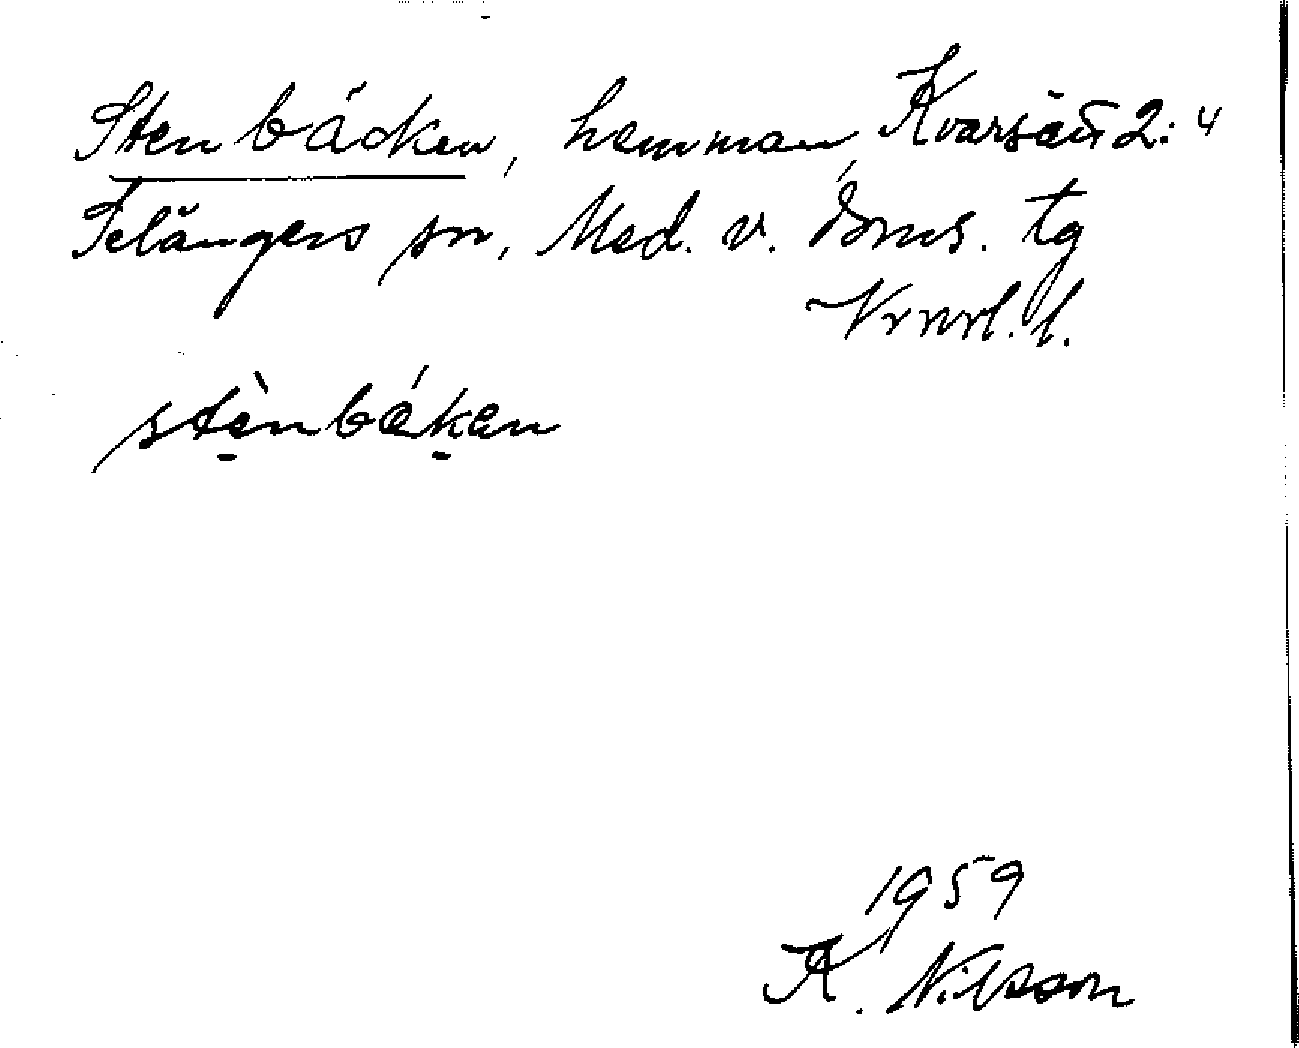 Stenbäcken, hemman, Kvarsätt 2:4
Selångers sn, Med. v. doms. tg
Vrnrl. l.
stènbáken
1959
K. Nilsson